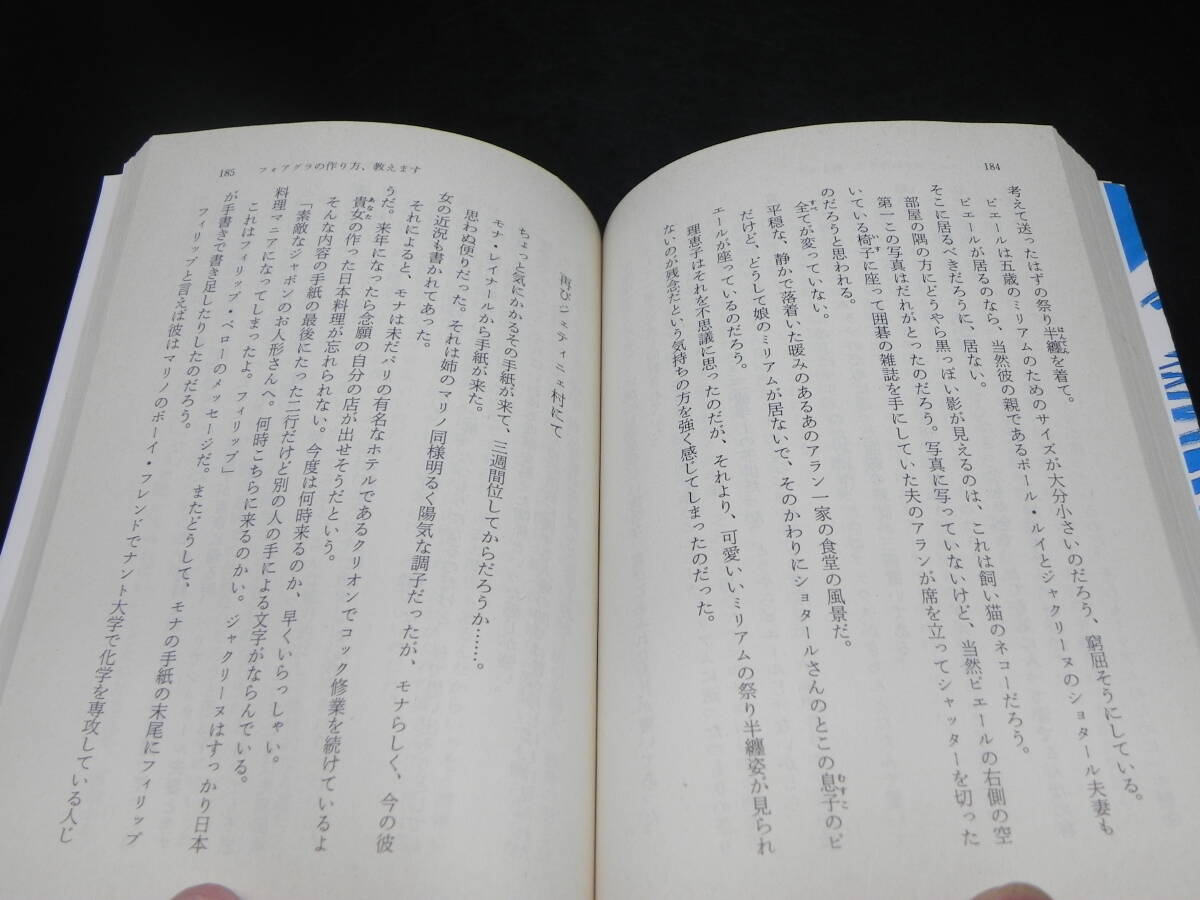 184
考えて送ったはずの祭り半纏を着て。
ピエールは五歳のミリアムのためのサイズが大分小さいのだろう、窮屈そうにしている。
ピエールが居るのなら、当然彼の親であるポール・ルイとジャクリーヌのショタール夫妻も
そこに居るべきだろうに、居ない。
部屋の隅の方にどうやら黒っぽい影が見えるのは、これは飼い猫のネコーだろう。
第一この写真はだれがとったのだろう。写真に写っていないけど、当然ピエールの右側の空
いている椅子に座って囲碁の雑誌を手にしていた夫のアランが席を立ってシャッターを切った
のだろうと思われる。
全てが変っていない。
平穏な、静かで落着いた暖みのあるあのアラン一家の食堂の風景だ。
だけど、どうして娘のミリアムが居ないで、そのかわりにショタールさんのとこの息子のピ
エールが座っているのだろう。
理恵子はそれを不思議に思ったのだが、それより、可愛いいミリアムの祭り半纏姿が見られ
ないのが残念だという気持ちの方を強く感じてしまったのだった。
185 フォアグラの作り方、教えます
再びシェティニェ村にて
ちょっと気にかかるその手紙が来て、三週間位してからだろうか……。
モナ・レイナールから手紙が来た。
思わぬ便りだった。それは姉のマリノ同様明るく陽気な調子だったが、モナらしく、今の彼
女の近況も書かれてあった。
それによると、モナは未だパリの有名なホテルであるクリオンでコック修業を続けているよ
うだ。来年になったら念願の自分の店が出せそうだという。
貴女の作った日本料理が忘れられない。今度は何時来るのか、早くいらっしゃい。
そんな内容の手紙の最後にたった二行だけど別の人の手による文字がならんでいる。
「素敵なジャポンのお人形さんへ。何時こちらに来るのかい。ジャクリーヌはすっかり日本
料理マニアになってしまったよ。フィリップ」
これはフィリップ・ベローのメッセージだ。またどうして、モナの手紙の末尾にフィリップ
が手書きで書き足したりしたのだろう。
フィリップと言えば彼はマリノのボーイ・フレンドでナント大学で化学を専攻している人じ